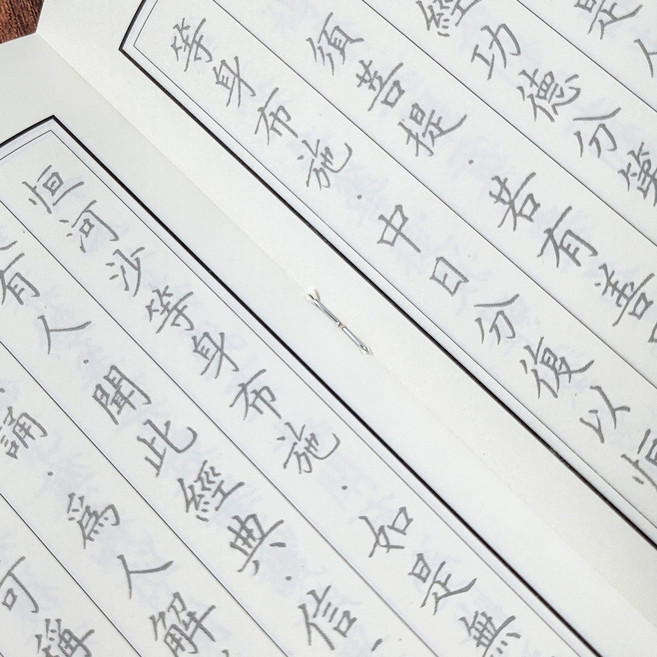 是人
經功德分第
須菩提.若有善
等身布施.中日分復以恒
恒河沙等身布施.如是無
有人.聞此經典.信
誦.爲人解
可稱